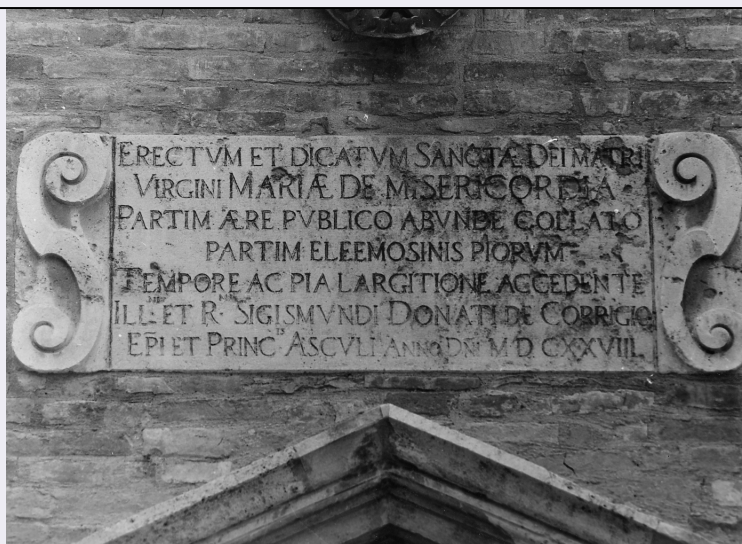 ERECTVM ET DICATVM SANCTÆ DEI MATRI
VIRGINI MARIÆ DE MISERICORDIA
PARTIM ÆRE PVBLICO ABVNDE COLLATO
PARTIM ELEEMOSINIS PIORVM
TEMPORE AC PIA LARGITIONE ACCEDENTE
ILL.MI ET R.MI SIGISMVNDI DONATI DE CORRIGIO
EPI ET PRINC.IS ASCVLI ANNO DNI M D CXXVIII